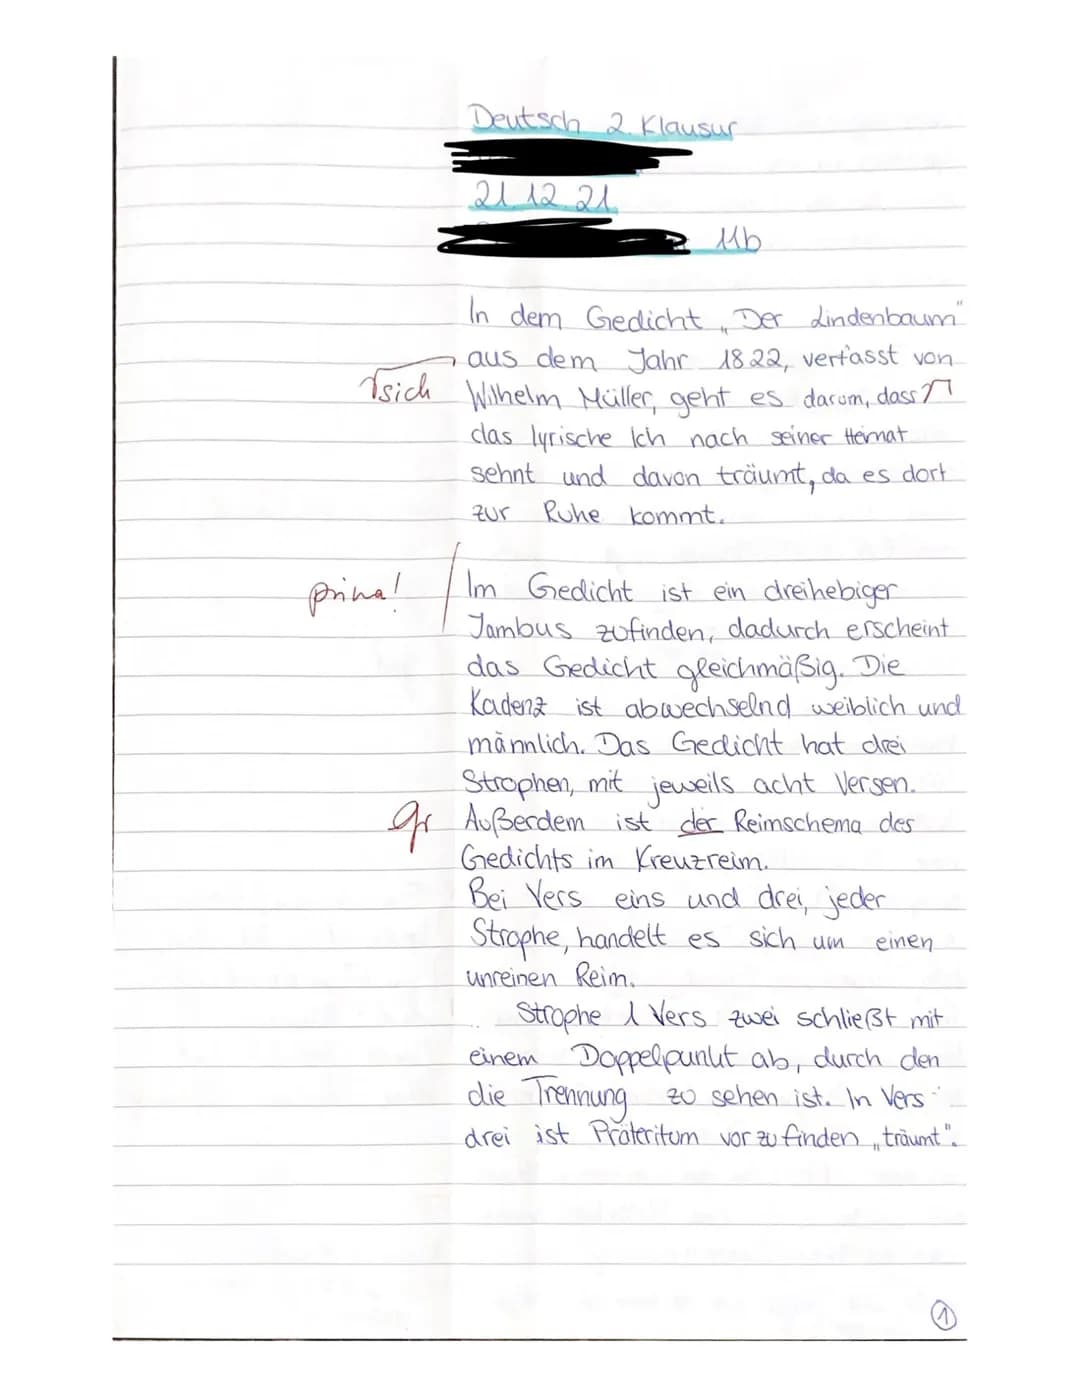 Deutsch 2. Klausur
21.12.21
11b
In dem Gedicht „Der Lindenbaum"
aus dem Jahr 1822, verfasst von
√sich Wilhelm Müller, geht es darum, dass √
das lyrische Ich nach seiner Heimat
sehnt und davon träumt, da es dort
zur Ruhe kommt.
prima! Im Gedicht ist ein dreihebiger
Jambus zufinden, dadurch erscheint
das Gedicht gleichmäßig. Die
Kadenz ist abwechselnd weiblich und
männlich. Das Gedicht hat drei
Strophen, mit jeweils acht Versen.
gr Außerdem ist der Reimschema des
Gedichts im Kreuzreim.
Bei Vers eins und drei, jeder
Strophe, handelt es sich um einen
unreinen Reim.
Strophe 1 Vers zwei schließt mit
einem Doppelpunkt ab, durch den
die Trennung zu sehen ist. In Vers
drei ist Präteritum vor zu finden „träumt".
1